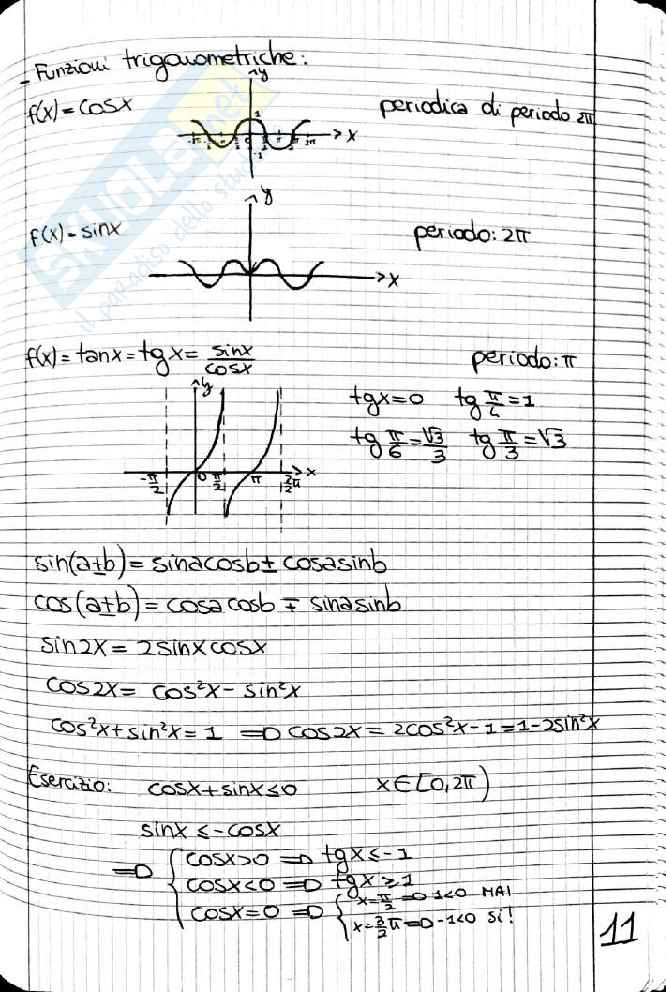 - Funzioni trigonometriche:
f(x) = cosx periodica di periodo 2π
y
1
x
-1
f(x) = sinx periodo: 2π
y
x
f(x) = tanx = tgx = sinx/cosx periodo: π
y
tgx=0 tg π/4 = 1
tg π/6 = √3/3 tg π/3 = √3
-π/2 0 π/2 π 3/2π x
sin(a±b) = sinacosb ± cosasinb
cos(a±b) = cosacosb ∓ sinasinb
sin2x = 2sinxcosx
cos2x = cos²x - sin²x
cos²x + sin²x = 1 => cos2x = 2cos²x - 1 = 1 - 2sin²x
Esercizio: cosx + sinx ≤ 0 x ∈ [0, 2π)
sinx ≤ -cosx
=> { cosx>0 => tgx ≤ -1
cosx<0 => tgx ≥ 1
cosx=0 => { x=π/2 => 1<0 MAI
x=3/2π => -1<0 Si!
11
skuola.net
il paradiso dello stu